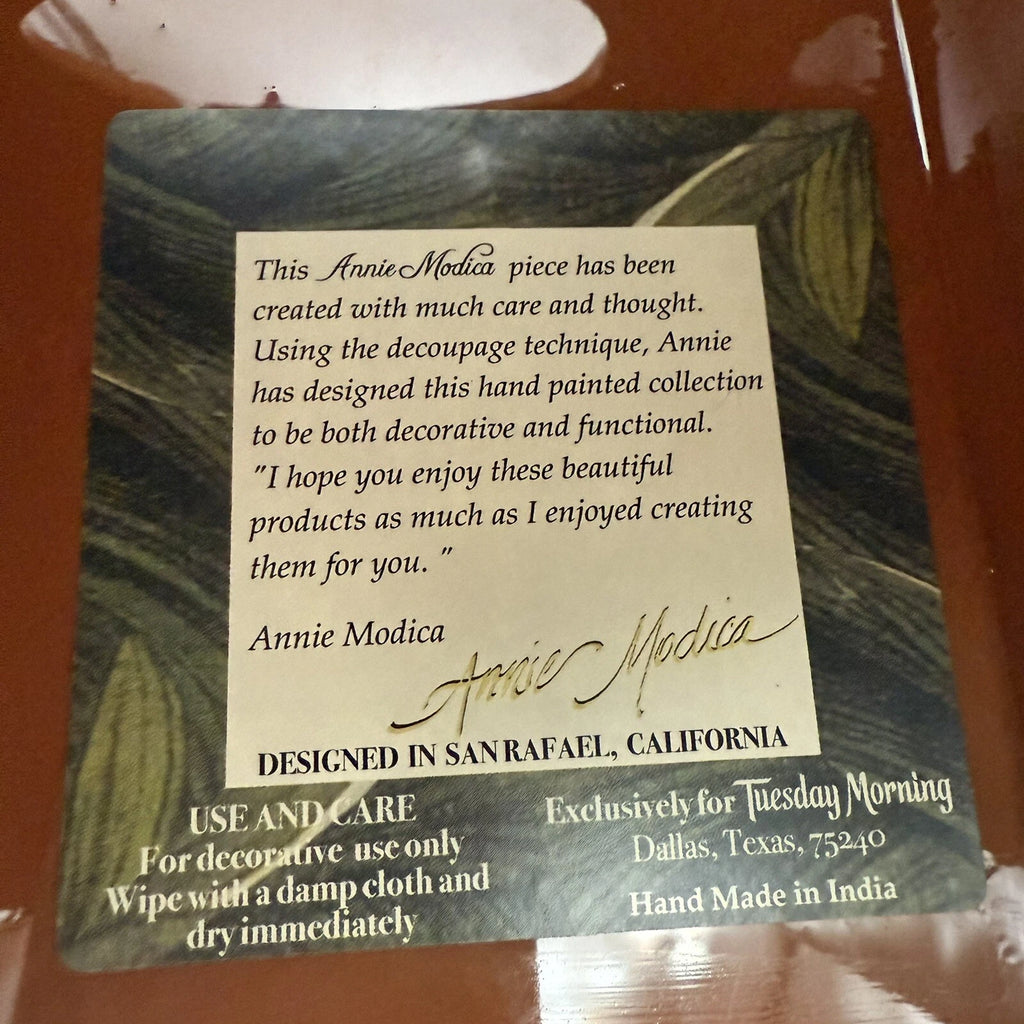 This Annie Modica piece has been
created with much care and thought.
Using the decoupage technique, Annie
has designed this hand painted collection
to be both decorative and functional.
"I hope you enjoy these beautiful
products as much as I enjoyed creating
them for you. "
Annie Modica
Annie Modica
DESIGNED IN SAN RAFAEL, CALIFORNIA
USE AND CARE
For decorative use only
Wipe with a damp cloth and
dry immediately
Exclusively for Tuesday Morning
Dallas, Texas, 75240
Hand Made in India